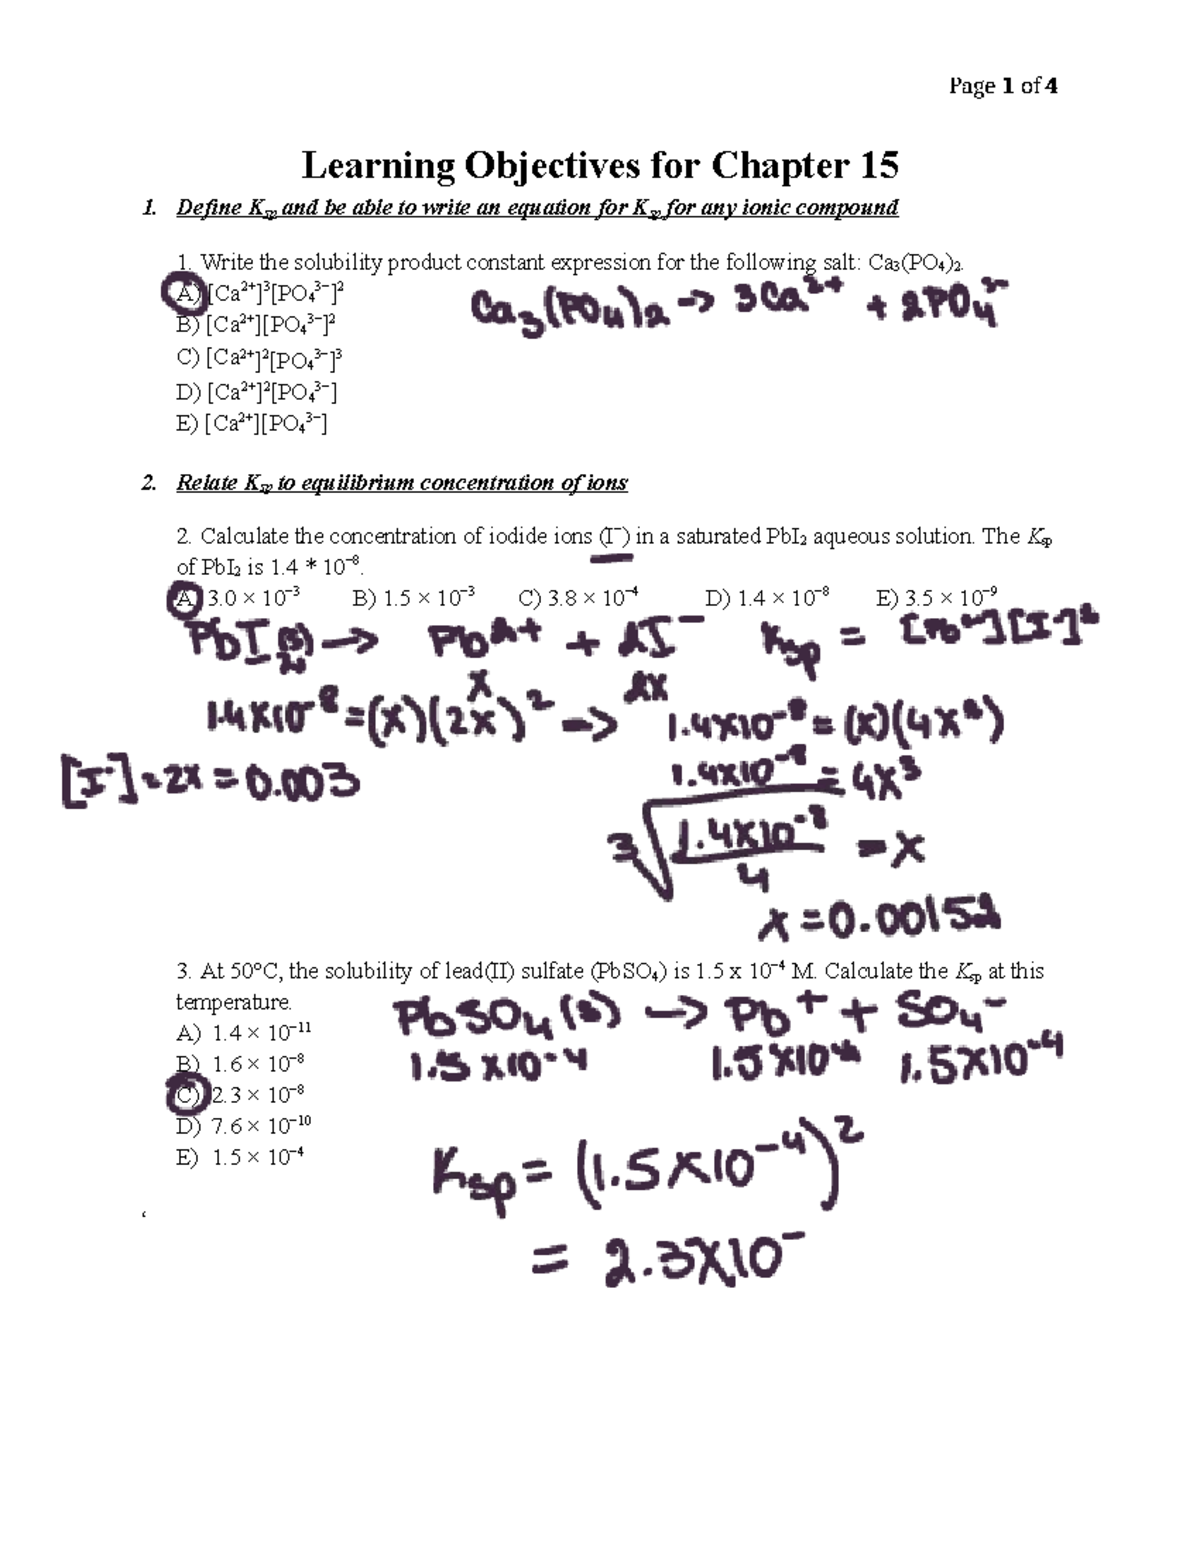 Page 1 of 4
Learning Objectives for Chapter 15
1. Define Ksp and be able to write an equation for Ksp for any ionic compound
1. Write the solubility product constant expression for the following salt: Ca₃(PO₄)₂.
A) [Ca²⁺]³[PO₄³⁻]²
Ca₃(PO₄)₂ → 3Ca²⁺ + 2PO₄³⁻
B) [Ca²⁺][PO₄³⁻]²
C) [Ca²⁺]²[PO₄³⁻]³
D) [Ca²⁺]²[PO₄³⁻]
E) [Ca²⁺][PO₄³⁻]
2. Relate Ksp to equilibrium concentration of ions
2. Calculate the concentration of iodide ions (I⁻) in a saturated PbI₂ aqueous solution. The Ksp
of PbI₂ is 1.4 * 10⁻⁸.
A) 3.0 × 10⁻³ B) 1.5 × 10⁻³ C) 3.8 × 10⁻⁴ D) 1.4 × 10⁻⁸ E) 3.5 × 10⁻⁹
PbI₂(s) → Pb²⁺ + 2I⁻ Ksp = [Pb²⁺][I⁻]²
x 2x
1.4x10⁻⁸ = (x)(2x)² → 1.4x10⁻⁸ = (x)(4x²)
[I⁻] = 2x = 0.003
1.4x10⁻⁸ = 4x³
3√1.4x10⁻⁸ = x
4
x = 0.00152
3. At 50°C, the solubility of lead(II) sulfate (PbSO₄) is 1.5 x 10⁻⁴ M. Calculate the Ksp at this
temperature.
PbSO₄(s) → Pb⁺ + SO₄⁻
A) 1.4 × 10⁻¹¹
1.5 x10⁻⁴ 1.5x10⁻⁴ 1.5x10⁻⁴
B) 1.6 × 10⁻⁸
C) 2.3 × 10⁻⁸
D) 7.6 × 10⁻¹⁰
E) 1.5 × 10⁻⁴
Ksp = (1.5x10⁻⁴)²
= 2.3x10⁻